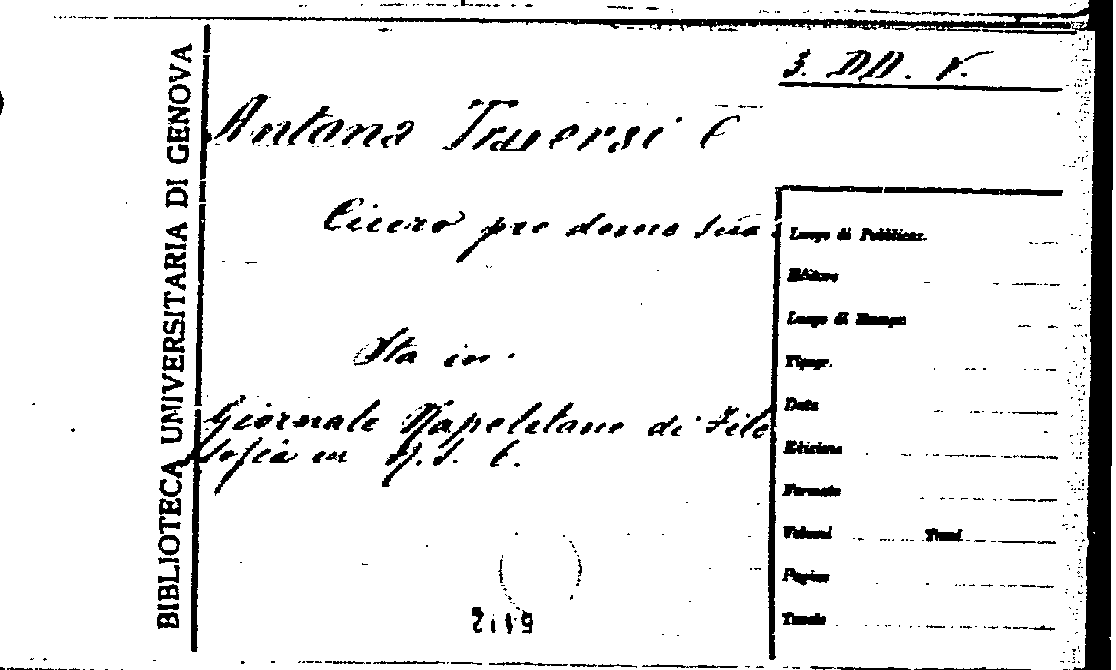 BIBLIOTECA UNIVERSITARIA DI GENOVA
3. DD. V.
Antona Traversi C
Cicero pro domo sua
Sta in
Giornale Napoletano di Filo
sofia in N. S. C.
Luogo di Pubblicaz.
Editore
Luogo di Stampa
Tipogr.
Data
Edizione
Formato
Volumi Tomi
Pagine
Tavole